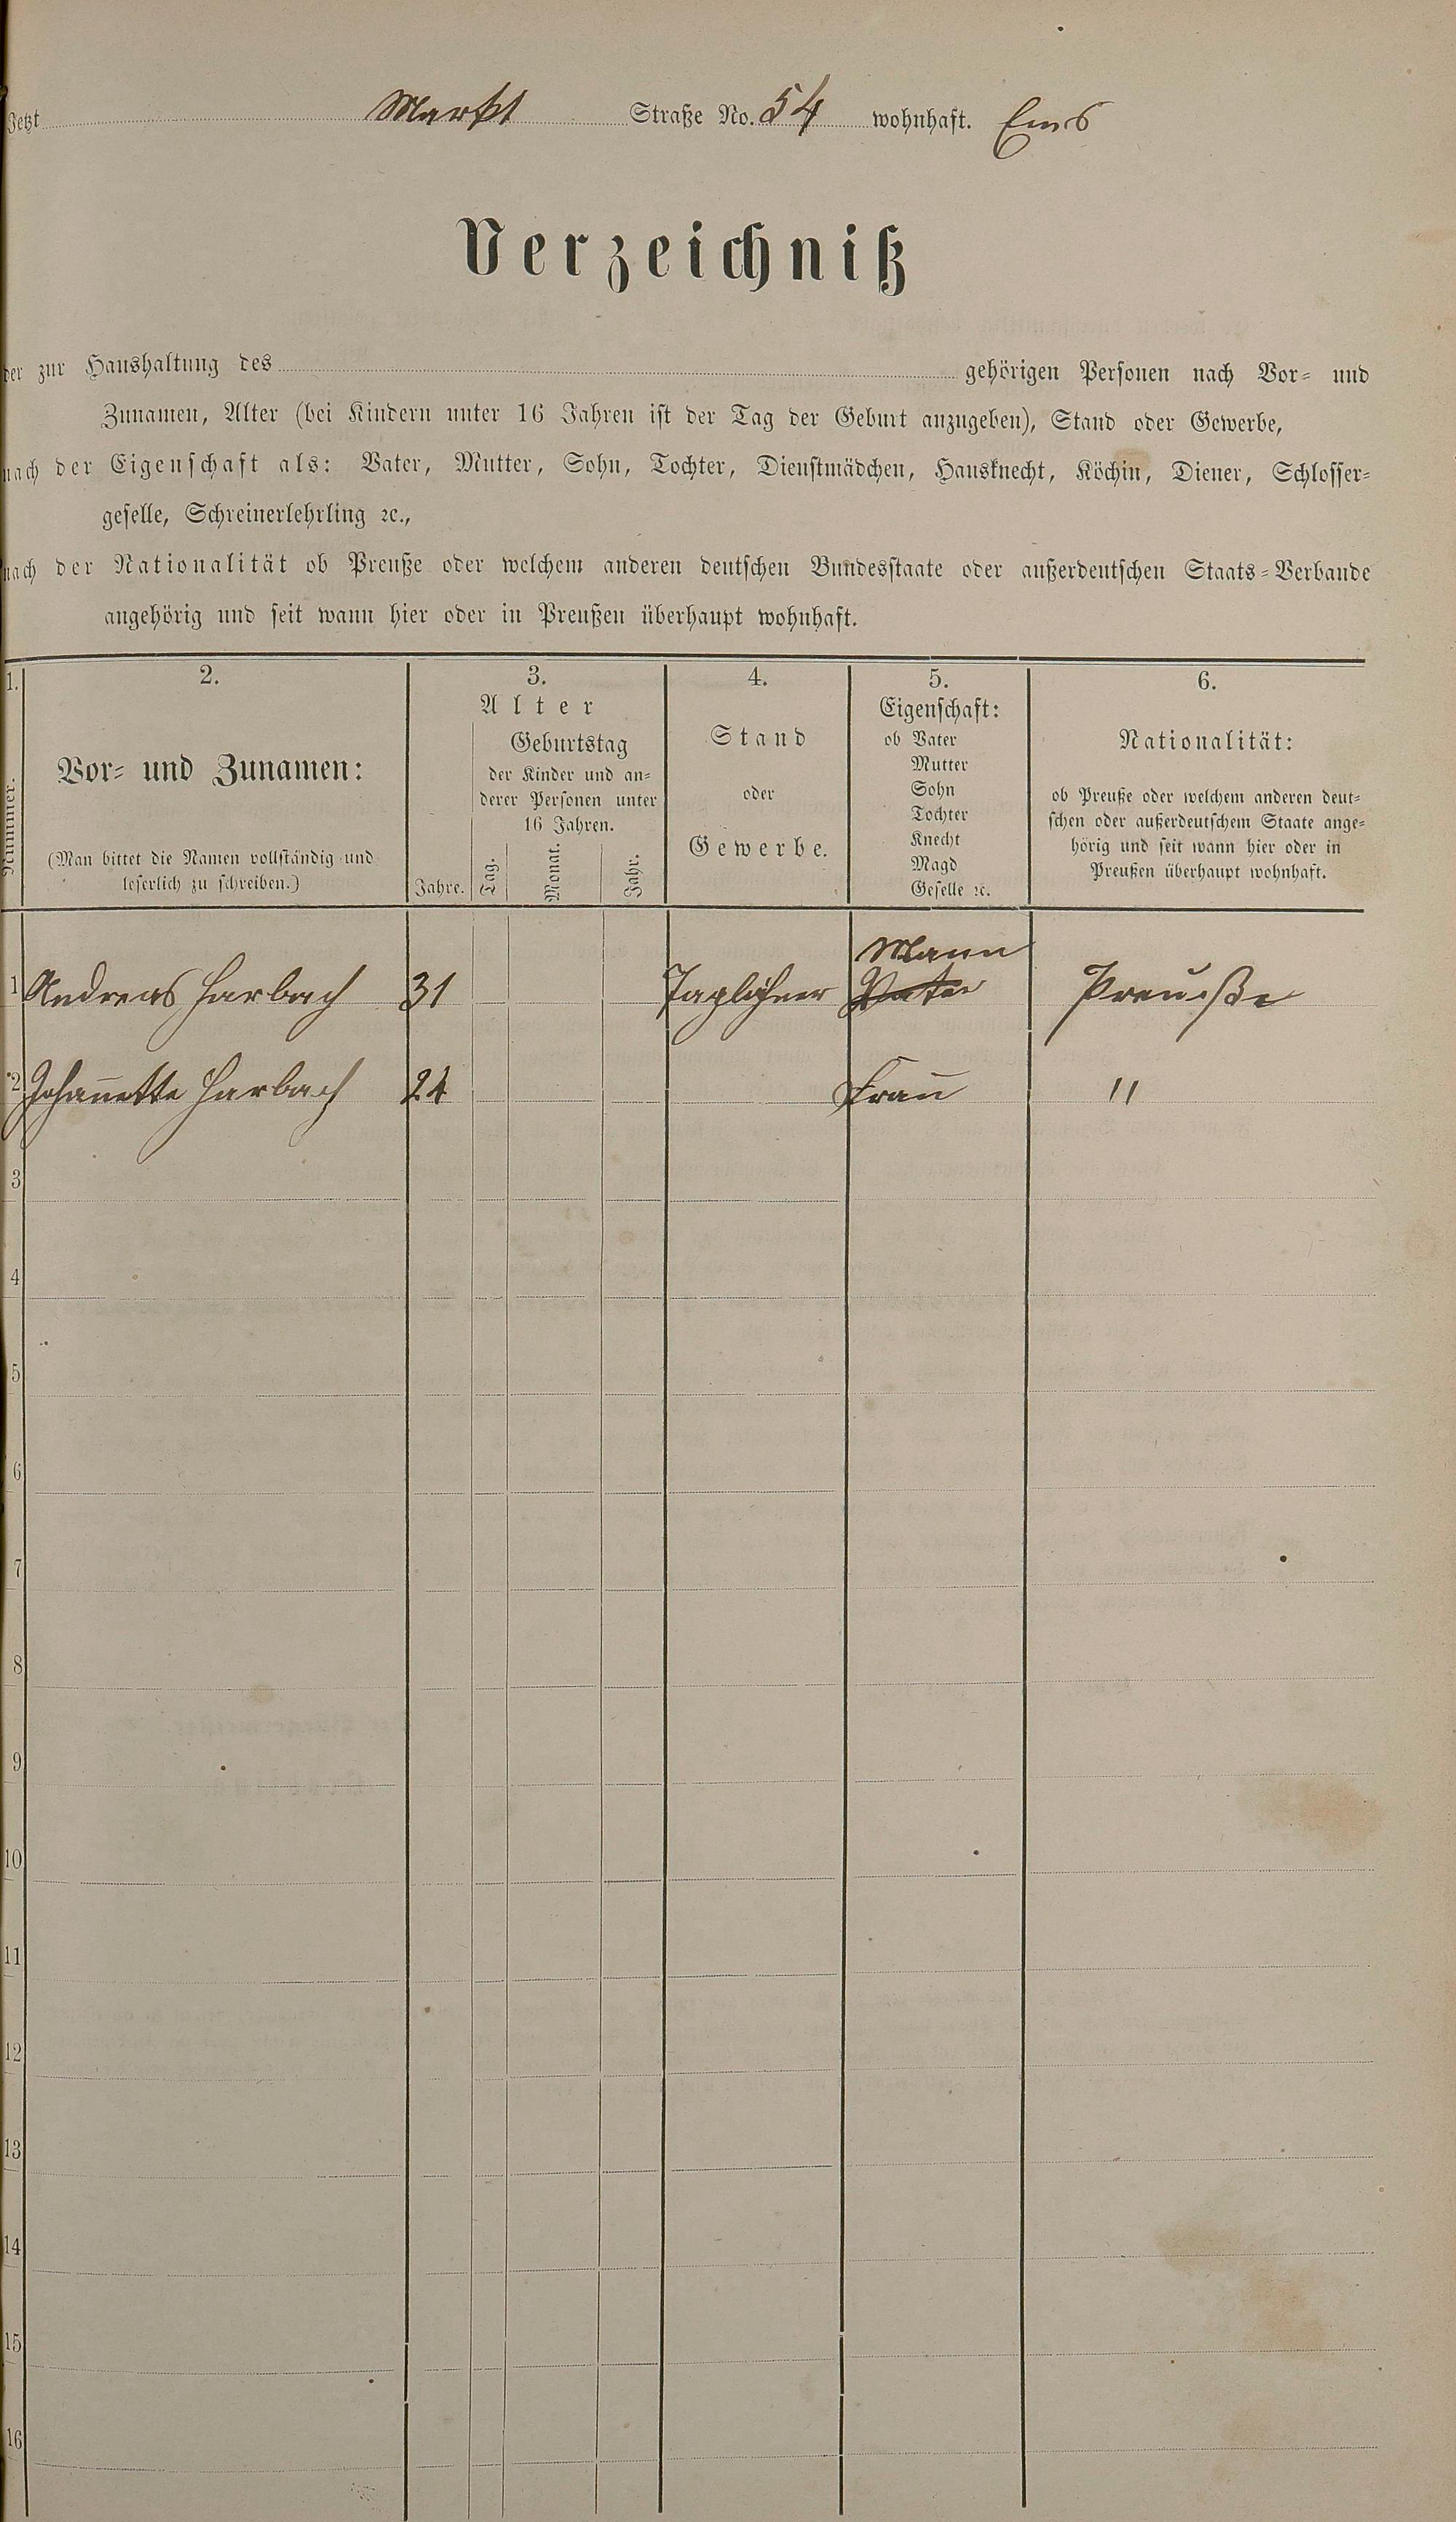 Jetzt Markt Straße No. 54 wohnhaft. Ems
Verzeichniß
der zur Haushaltung des gehörigen Personen nach Vor- und
Zunamen, Alter (bei Kindern unter 16 Jahren ist der Tag der Geburt anzugeben), Stand oder Gewerbe,
nach der Eigenschaft als: Vater, Mutter, Sohn, Tochter, Dienstmädchen, Hausknecht, Köchin, Diener, Schlosser-
geselle, Schreinerlehrling ꝛc.,
nach der Nationalität ob Preuße oder welchem anderen deutschen Bundesstaate oder außerdeutschen Staats-Verbande
angehörig und seit wann hier oder in Preußen überhaupt wohnhaft.
1.
Nummer.
2.
Vor- und Zunamen:
(Man bittet die Namen vollständig und
leserlich zu schreiben.)
3.
Alter
Jahre.
Geburtstag
der Kinder und an-
derer Personen unter
16 Jahren.
Tag. Monat. Jahr.
4.
Stand
oder
Gewerbe.
5.
Eigenschaft:
ob Vater
Mutter
Sohn
Tochter
Knecht
Magd
Geselle ꝛc.
6.
Nationalität:
ob Preuße oder welchem anderen deut-
schen oder außerdeutschem Staate ange-
hörig und seit wann hier oder in
Preußen überhaupt wohnhaft.
Mann
1 Andreas Harbach 31 Taglöhner Vater Preuße
2 Johannette Harbach 24 Frau "
3
4
5
6
7
8
9
10
11
12
13
14
15
16